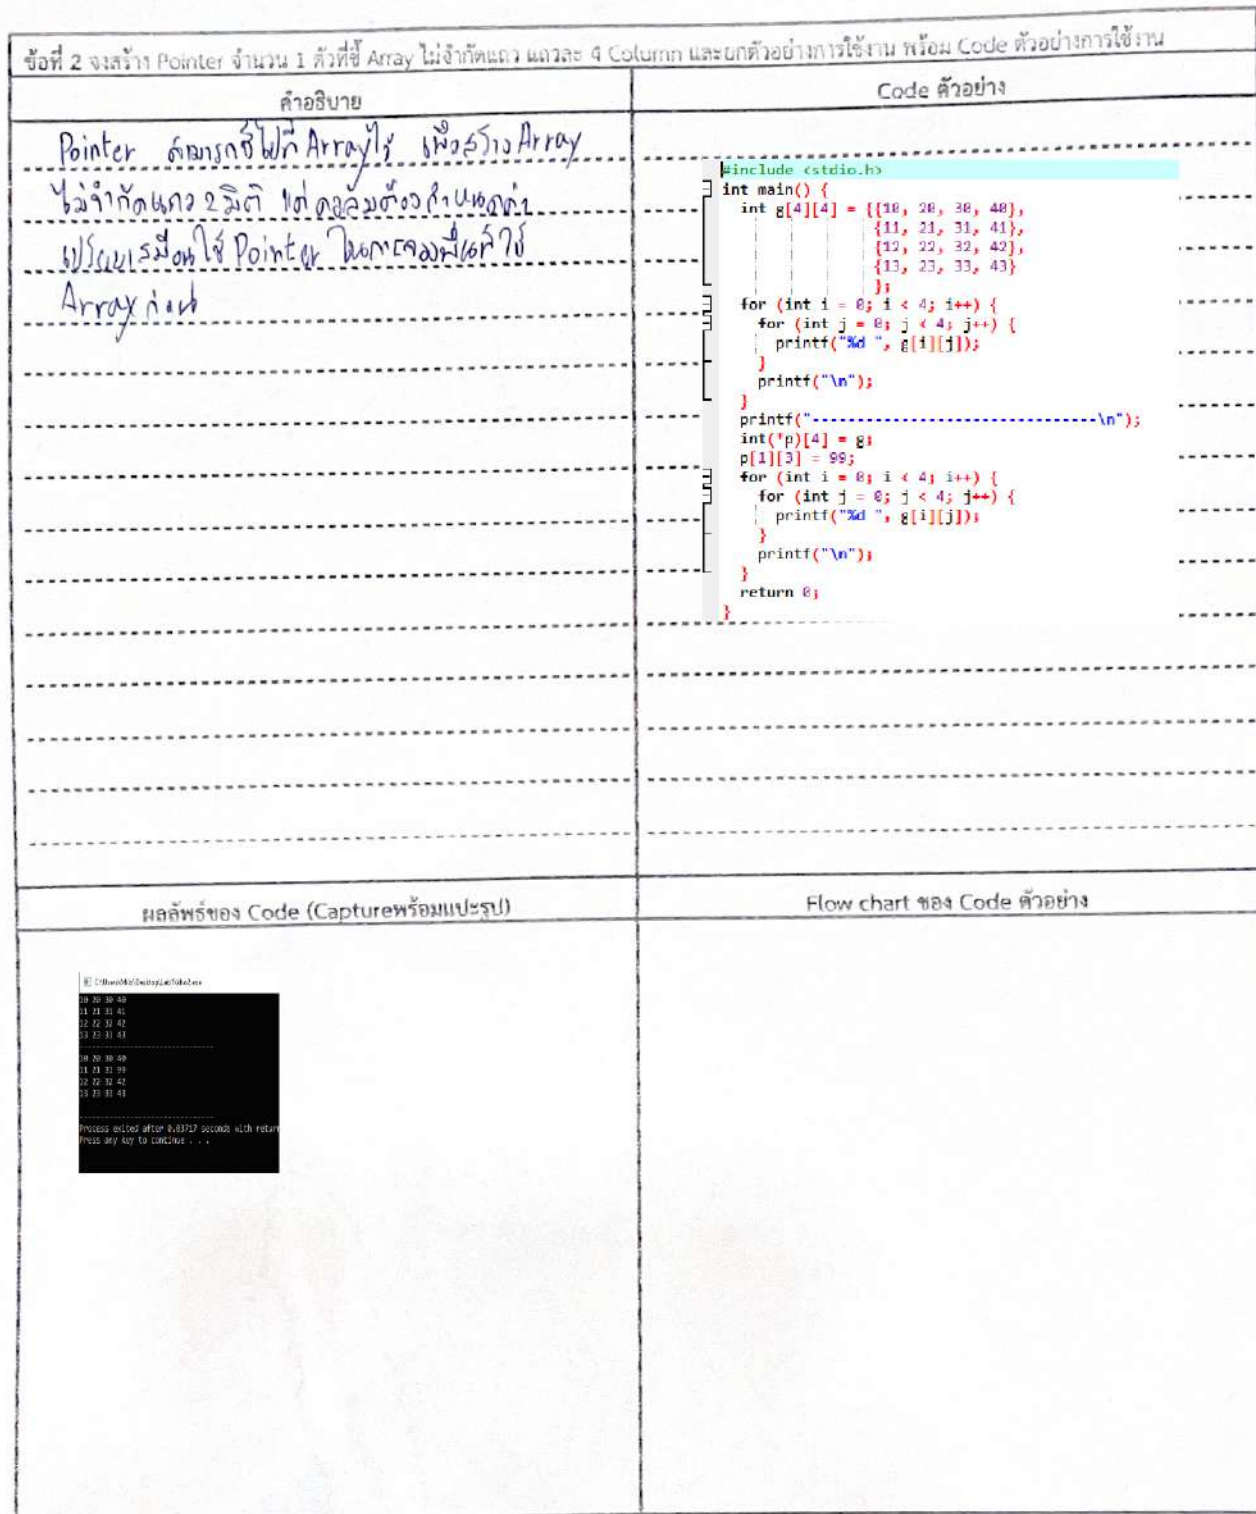 ข้อที่ 2 จงสร้าง Pointer จำนวน 1 ตัวที่ชี้ Array ไม่จำกัดแถว แถวละ 4 Column และยกตัวอย่างการใช้งาน พร้อม Code ตัวอย่างการใช้งาน
คำอธิบาย
Pointer สามารถชี้ไปที่ Array ได้ เพื่อสร้าง Array
ไม่จำกัดแถว 2 มิติ แต่คอลัมต้องกำหนดค่า
เปรียบเสมือนใช้ Pointer ในการจองพื้นที่ใช้
Array ก่อน
Code ตัวอย่าง
#include <stdio.h>
int main() {
int g[4][4] = {{10, 20, 30, 40},
{11, 21, 31, 41},
{12, 22, 32, 42},
{13, 23, 33, 43}
};
for (int i = 0; i < 4; i++) {
for (int j = 0; j < 4; j++) {
printf("%d ", g[i][j]);
}
printf("\n");
}
printf("--------------------------------\n");
int(*p)[4] = g;
p[1][3] = 99;
for (int i = 0; i < 4; i++) {
for (int j = 0; j < 4; j++) {
printf("%d ", g[i][j]);
}
printf("\n");
}
return 0;
}
ผลลัพธ์ของ Code (Captureพร้อมแปะรูป)
10 20 30 40
11 21 31 41
12 22 32 42
13 23 33 43
--------------------------------
10 20 30 40
11 21 31 99
12 22 32 42
13 23 33 43
--------------------------------
Process exited after 0.03717 seconds with return
Press any key to continue . . .
Flow chart ของ Code ตัวอย่าง